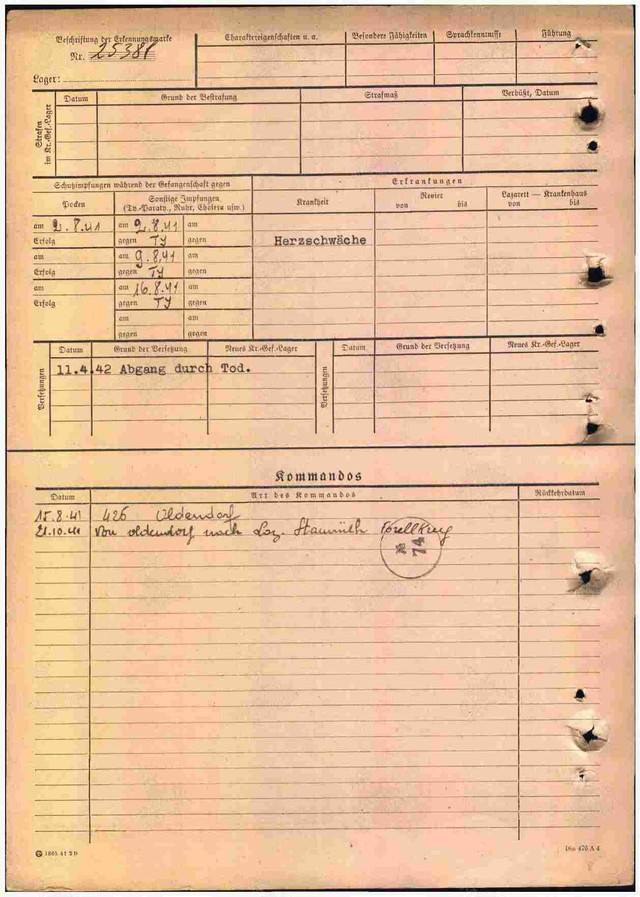 Beschriftung der Erkennungsmarke
Nr. 25381
Lager:
Charaktereigenschaften u. a.
Besondere Fähigkeiten
Sprachkenntnisse
Führung
Strafen im Kr.-Gef.-Lager
Datum
Grund der Bestrafung
Strafmaß
Verbüßt, Datum
Schutzimpfungen während der Gefangenschaft gegen
Erkrankungen
Pocken
Sonstige Impfungen
(Ty.-Paraty., Ruhr, Cholera usw.)
Krankheit
Revier
von bis
Lazarett — Krankenhaus
von bis
am 2.8.41 am 2.8.41 am
Erfolg gegen TY gegen
Herzschwäche
am am 9.8.41 am
Erfolg gegen TY gegen
am am 16.8.41 am
Erfolg gegen TY gegen
am am
gegen gegen
Versetzungen
Datum Grund der Versetzung Neues Kr.-Gef.-Lager
11.4.42 Abgang durch Tod.
Versetzungen
Datum Grund der Versetzung Neues Kr.-Gef.-Lager
Kommandos
Datum Art des Kommandos Rückkehrdatum
15.8.41 426 Oldendorf
21.10.41 Von oldendorf nach Laz. Staumühle
74
1805 41 2 D
Din 476 A 4